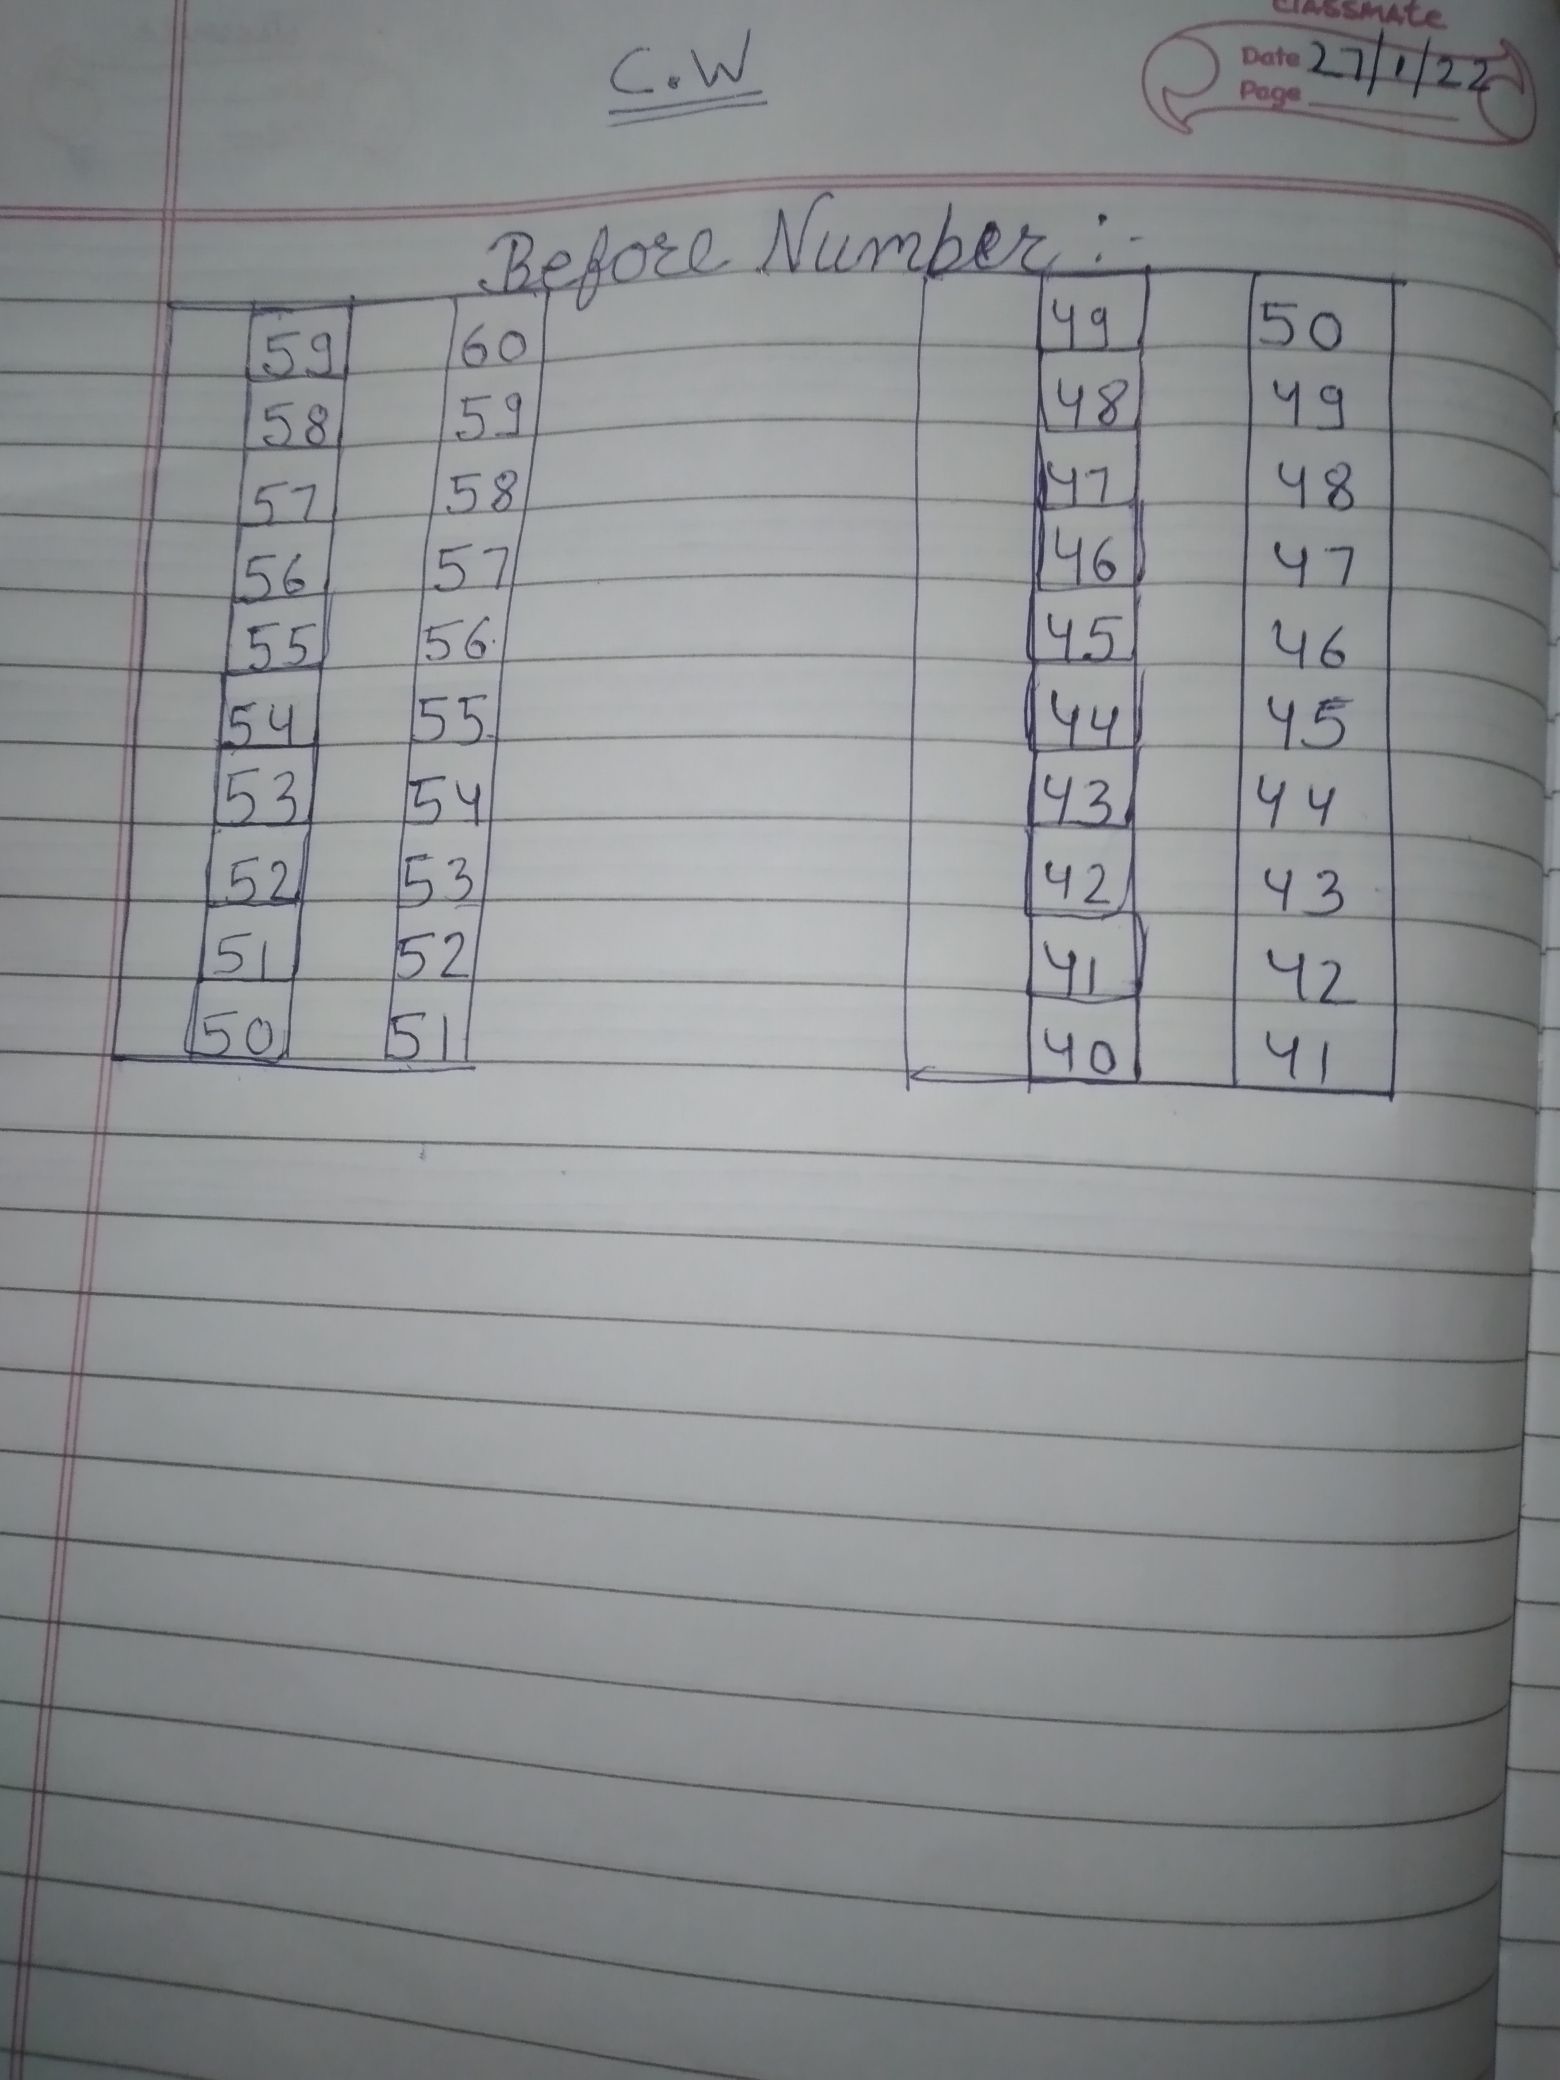 classmate
C.W
Date 27/1/22
Page
Before Number :-
59 60 49 50
58 59 48 49
57 58 47 48
56 57 46 47
55 56 45 46
54 55 44 45
53 54 43 44
52 53 42 43
51 52 41 42
50 51 40 41